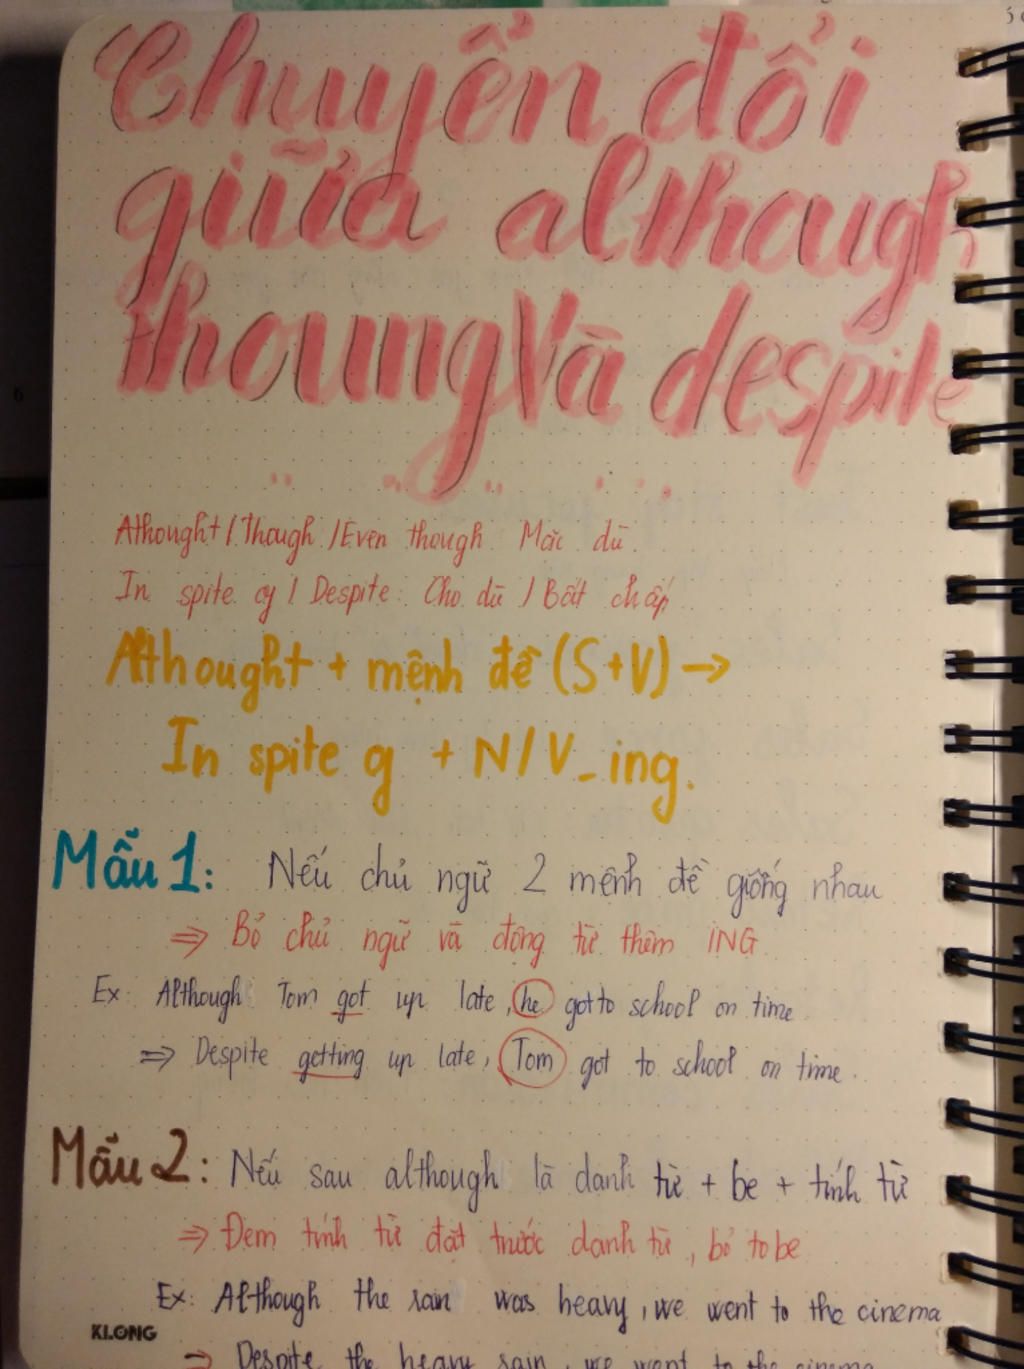 Chuyển đổi
giữa although
thoung Và despite
Athought / Though / Even though Mặc dù.
In spite of / Despite: Cho dù / Bất chấp
Althought + mệnh đề (S+V) →
In spite of + N/V_ing.
Mẫu 1: Nếu chủ ngữ 2 mệnh đề giống nhau
⇒ Bỏ chủ ngữ và động từ thêm ING
Ex: Although Tom got up late, he got to school on time
⇒ Despite getting up late, Tom got to school on time.
Mẫu 2: Nếu sau although là danh từ + be + tính từ
⇒ Đem tính từ đặt trước danh từ, bỏ to be
Ex: Although the rain was heavy, we went to the cinema
KLONG
⇒ Despite the heavy rain, we went to the cinema